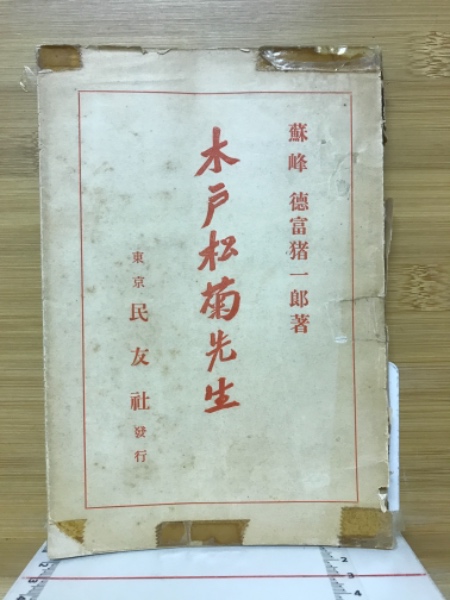 蘇峰 德富猪一郎著
木戸松菊先生
東京 民友社 發行
2
3
4